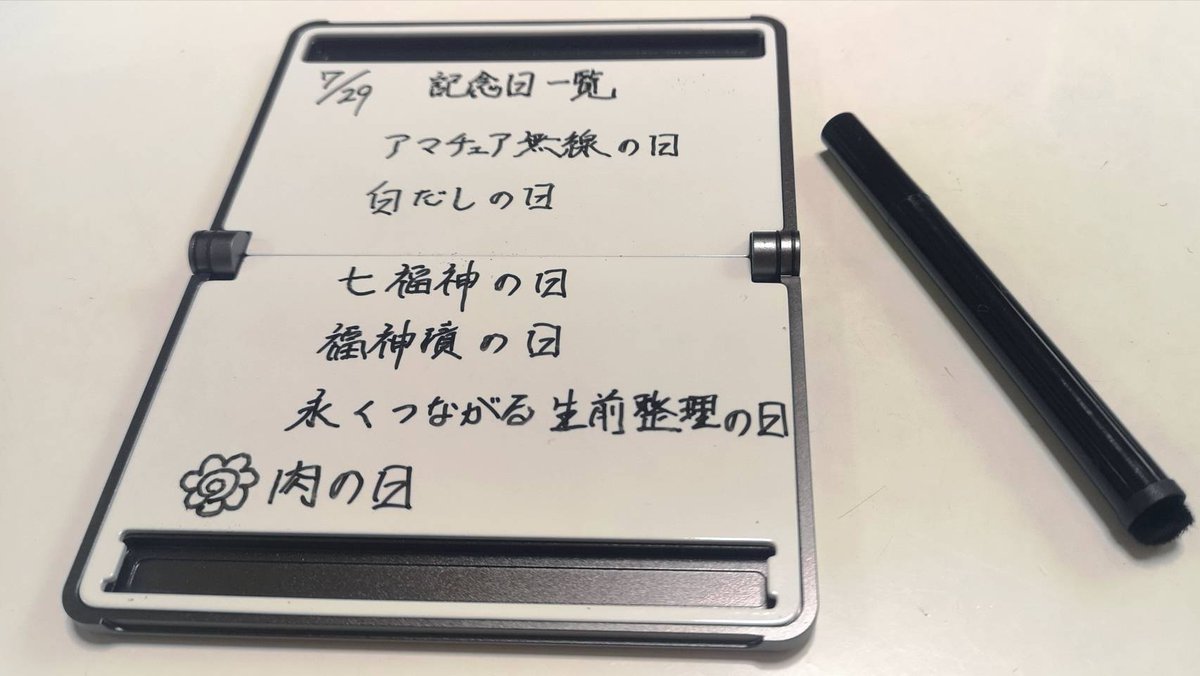 7/29 記念日一覧
アマチュア無線の日
白だしの日
七福神の日
福神漬の日
永くつながる生前整理の日
肉の日